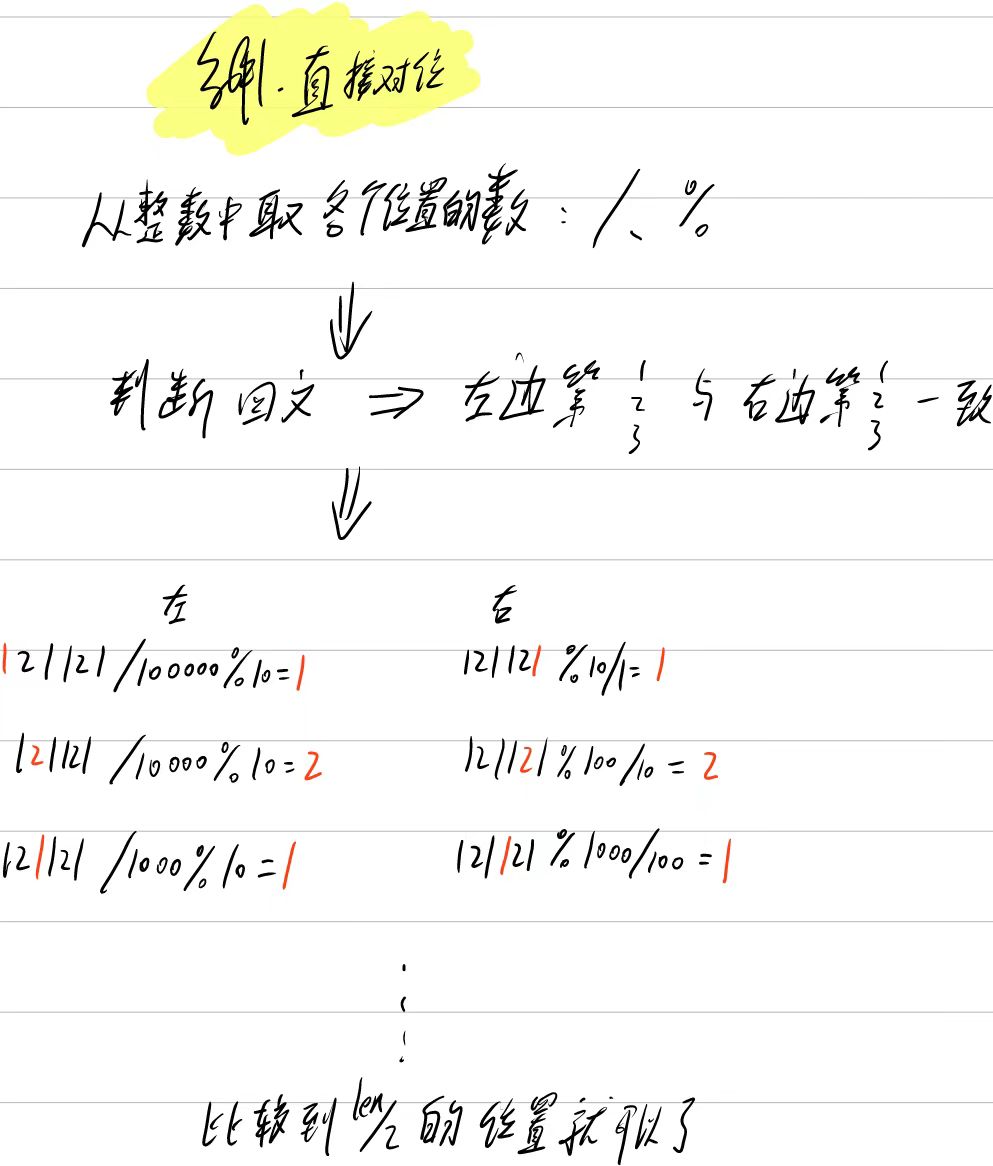 1. 直接对位
从整数中取各个位置的数：/、%
⇓
判断回文 ⇒ 左边第 1 2 3 与右边第 1 2 3 一致
⇓
左 右
121121 /100000%10=1 121121 %10/1=1
121121 /10000%10=2 121121%100/10=2
121121 /1000%10=1 121121%1000/100=1
比较到 len/2 的位置就可以了